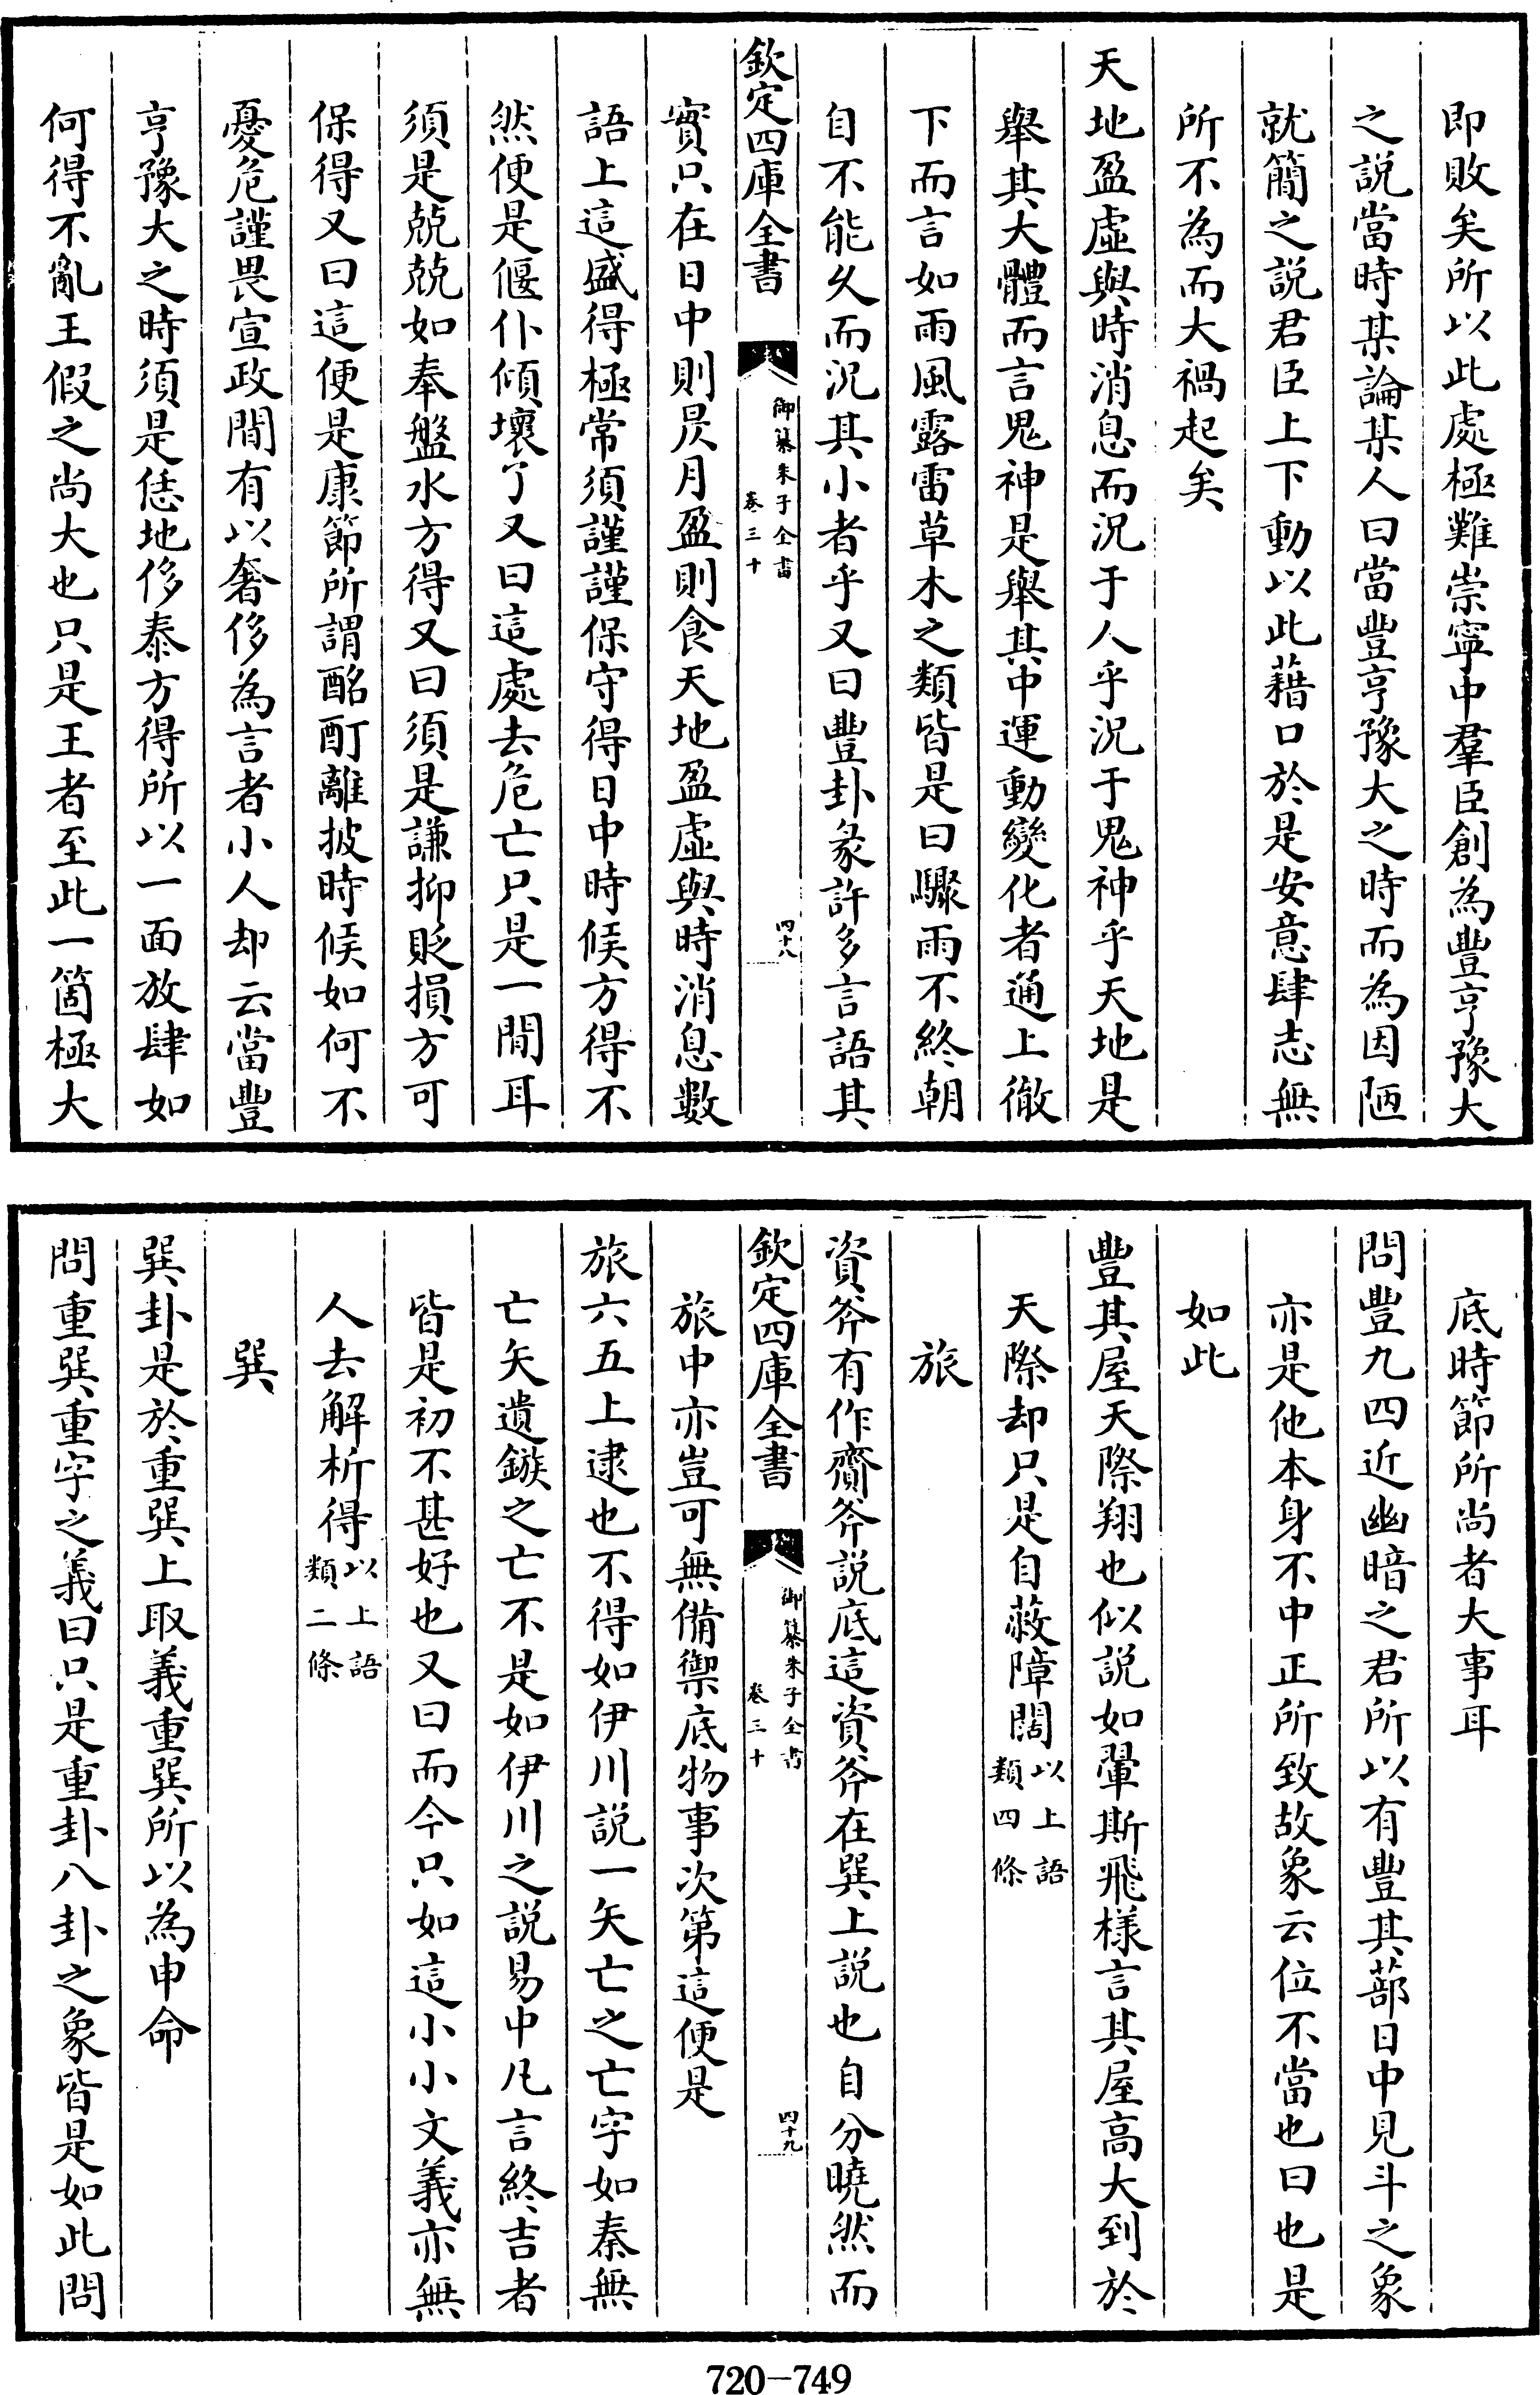 即敗矣所以此處極難崇寧中羣臣創為豐亨豫大
之説當時某論某人曰當豐亨豫大之時而為因陋
就簡之説君臣上下動以此藉口於是安意肆志無
所不為而大禍起矣
天地盈虛與時消息而況于人乎況于鬼神乎天地是
舉其大體而言鬼神是舉其中運動變化者通上徹
下而言如雨風露雷草木之類皆是曰驟雨不終朝
自不能久而況其小者乎又曰豐卦彖許多言語其
欽定四庫全書
御纂朱子全書
卷三十
四十八
實只在日中則昃月盈則食天地盈虛與時消息數
語上這盛得極常須謹謹保守得日中時候方得不
然便是偃仆傾壞了又曰這處去危亡只是一間耳
須是兢兢如奉盤水方得又曰須是謙抑貶損方可
保得又曰這便是康節所謂酩酊離披時候如何不
憂危謹畏宣政間有以奢侈為言者小人却云當豐
亨豫大之時須是恁地侈泰方得所以一面放肆如
何得不亂王假之尚大也只是王者至此一箇極大
底時節所尚者大事耳
問豐九四近幽暗之君所以有豐其蔀日中見斗之象
亦是他本身不中正所致故象云位不當也曰也是
如此
豐其屋天際翔也似説如翬斯飛樣言其屋高大到於
天際却只是自蔽障闊以上語類四條
旅
資斧有作齎斧説底這資斧在巽上説也自分曉然而
欽定四庫全書
御纂朱子全書
卷三十
四十九
旅中亦豈可無備禦底物事次第這便是
旅六五上逮也不得如伊川説一矢亡之亡字如秦無
亡矢遺鏃之亡不是如伊川之説易中凡言終吉者
皆是初不甚好也又曰而今只如這小小文義亦無
人去解析得以上語類二條
巽
巽卦是於重巽上取義重巽所以為申命
問重巽重字之義曰只是重卦八卦之象皆是如此問
720-749